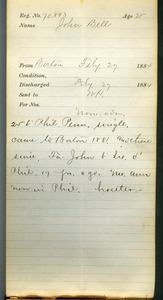 Reg. No. 70883 Age 25
Name John Bell
From Boston Feby 27 1884
Condition,
Discharged Feby 27 1884
Sent to
For Nos.
25 b Phil. Penn, single,
came to Boston 1881 and here
since. Fa. John b Ire. d
Phil. 17 yrs. ago. Mo. Ann
now in Phil.